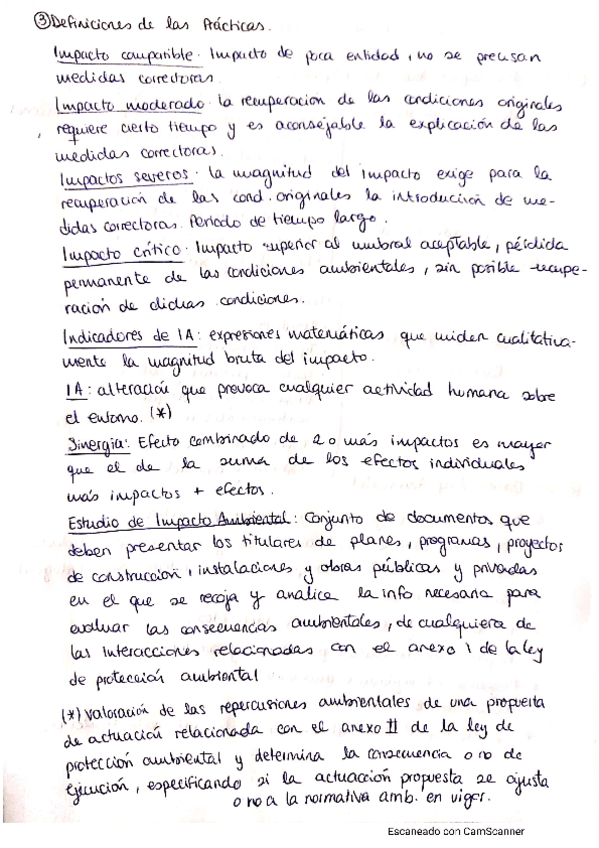 ③ Definiciones de las Prácticas.
Impacto compatible. Impacto de poca entidad, no se precisan
medidas correctoras.
Impacto moderado. la recuperación de las condiciones originales
requiere cierto tiempo y es aconsejable la explicación de las
medidas correctoras.
Impactos severos. la magnitud del impacto exige para la
recuperación de las cond. originales la introducción de me-
didas correctoras. Periodo de tiempo largo.
Impacto crítico. Impacto superior al umbral aceptable, pérdida
permanente de las condiciones ambientales, sin posible recupe-
ración de dichas condiciones.
Indicadores de IA: expresiones matemáticas que miden cualitativa-
mente la magnitud bruta del impacto.
IA: alteración que provoca cualquier actividad humana sobre
el entorno. (*)
Sinergia: Efecto combinado de 2 o más impactos es mayor
que el de la suma de los efectos individuales
más impactos + efectos.
Estudio de Impacto Ambiental: Conjunto de documentos que
deben presentar los titulares de planes, programas, proyectos
de construcción, instalaciones y obras públicas y privadas
en el que se recoja y analice la info necesaria para
evaluar las consecuencias ambientales, de cualquiera de
las interacciones relacionadas con el anexo 1 de la ley
de protección ambiental
(*) Valoración de las repercusiones ambientales de una propuesta
de actuación relacionada con el anexo II de la ley de
protección ambiental y determina la consecuencia o no de
ejecución, especificando si la actuación propuesta se ajusta
o no a la normativa amb. en vigor.
Escaneado con CamScanner